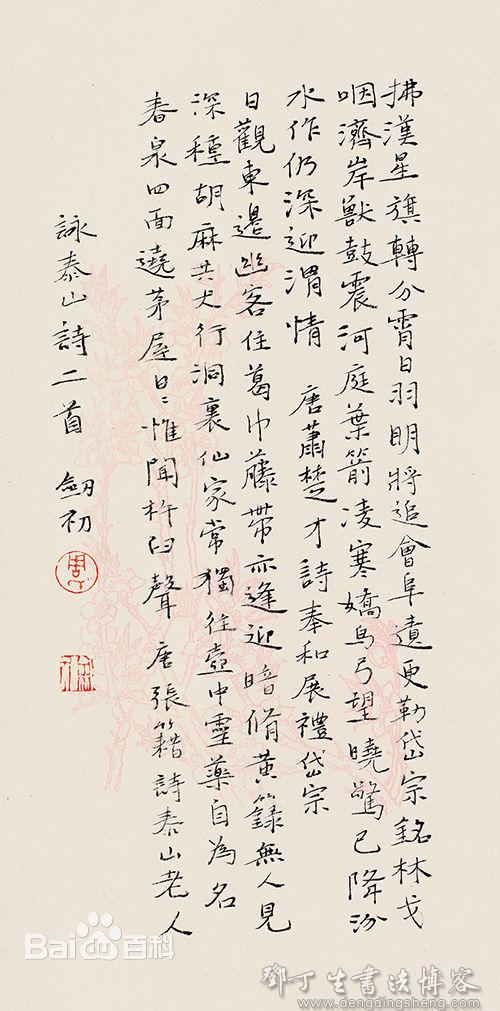 拂漢星旗轉分霄日羽明將追會阜遺更勒岱宗銘林戈
咽濟岸獸鼓震河庭葉箭凌寒嬌烏弓望曉驚已降汾
水作仍深迎渭情 唐蕭楚才詩奉和展禮岱宗
日觀東邊幽客住葛巾藤帶亦逢迎暗脩黃籙無人見
深種胡麻共犬行洞裏仙家常獨往壺中靈藥自為名
春泉四面遶茅屋日〻惟聞杵臼聲 唐張籍詩泰山老人
詠泰山詩二首 劒初
周
Bai百科
鄧丁生書法博客
www.dengdingsheng.com